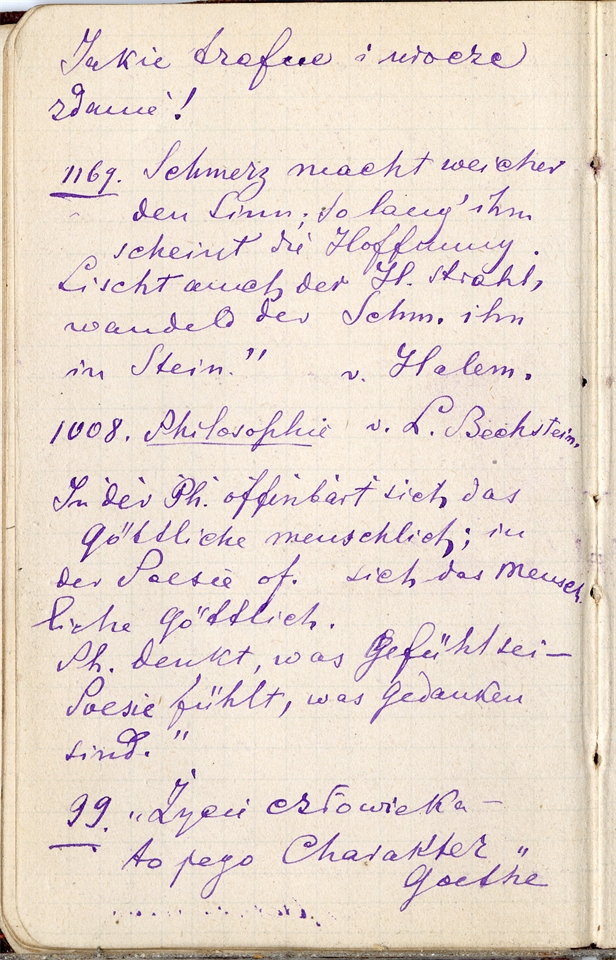 Jakie trafne i urocze
zdanie!
1169. Schmerz macht weicher
den Sinn, so lang' ihm
scheint die Hoffnung.
Lischt auch der H. strahl,
wandelt der Schm. ihn
in Stein." v. Halem.
1008. Philosophie v. L. Bechstein.
In der Ph. offenbart sich das
göttliche menschlich; in
der Poesie of. sich das mensch
liche göttlich.
Ph. denkt, was Gefühl sei—
Poesie fühlt, was Gedanken
sind."
99. „Życie człowieka —
to jego Charakter„
Goethe